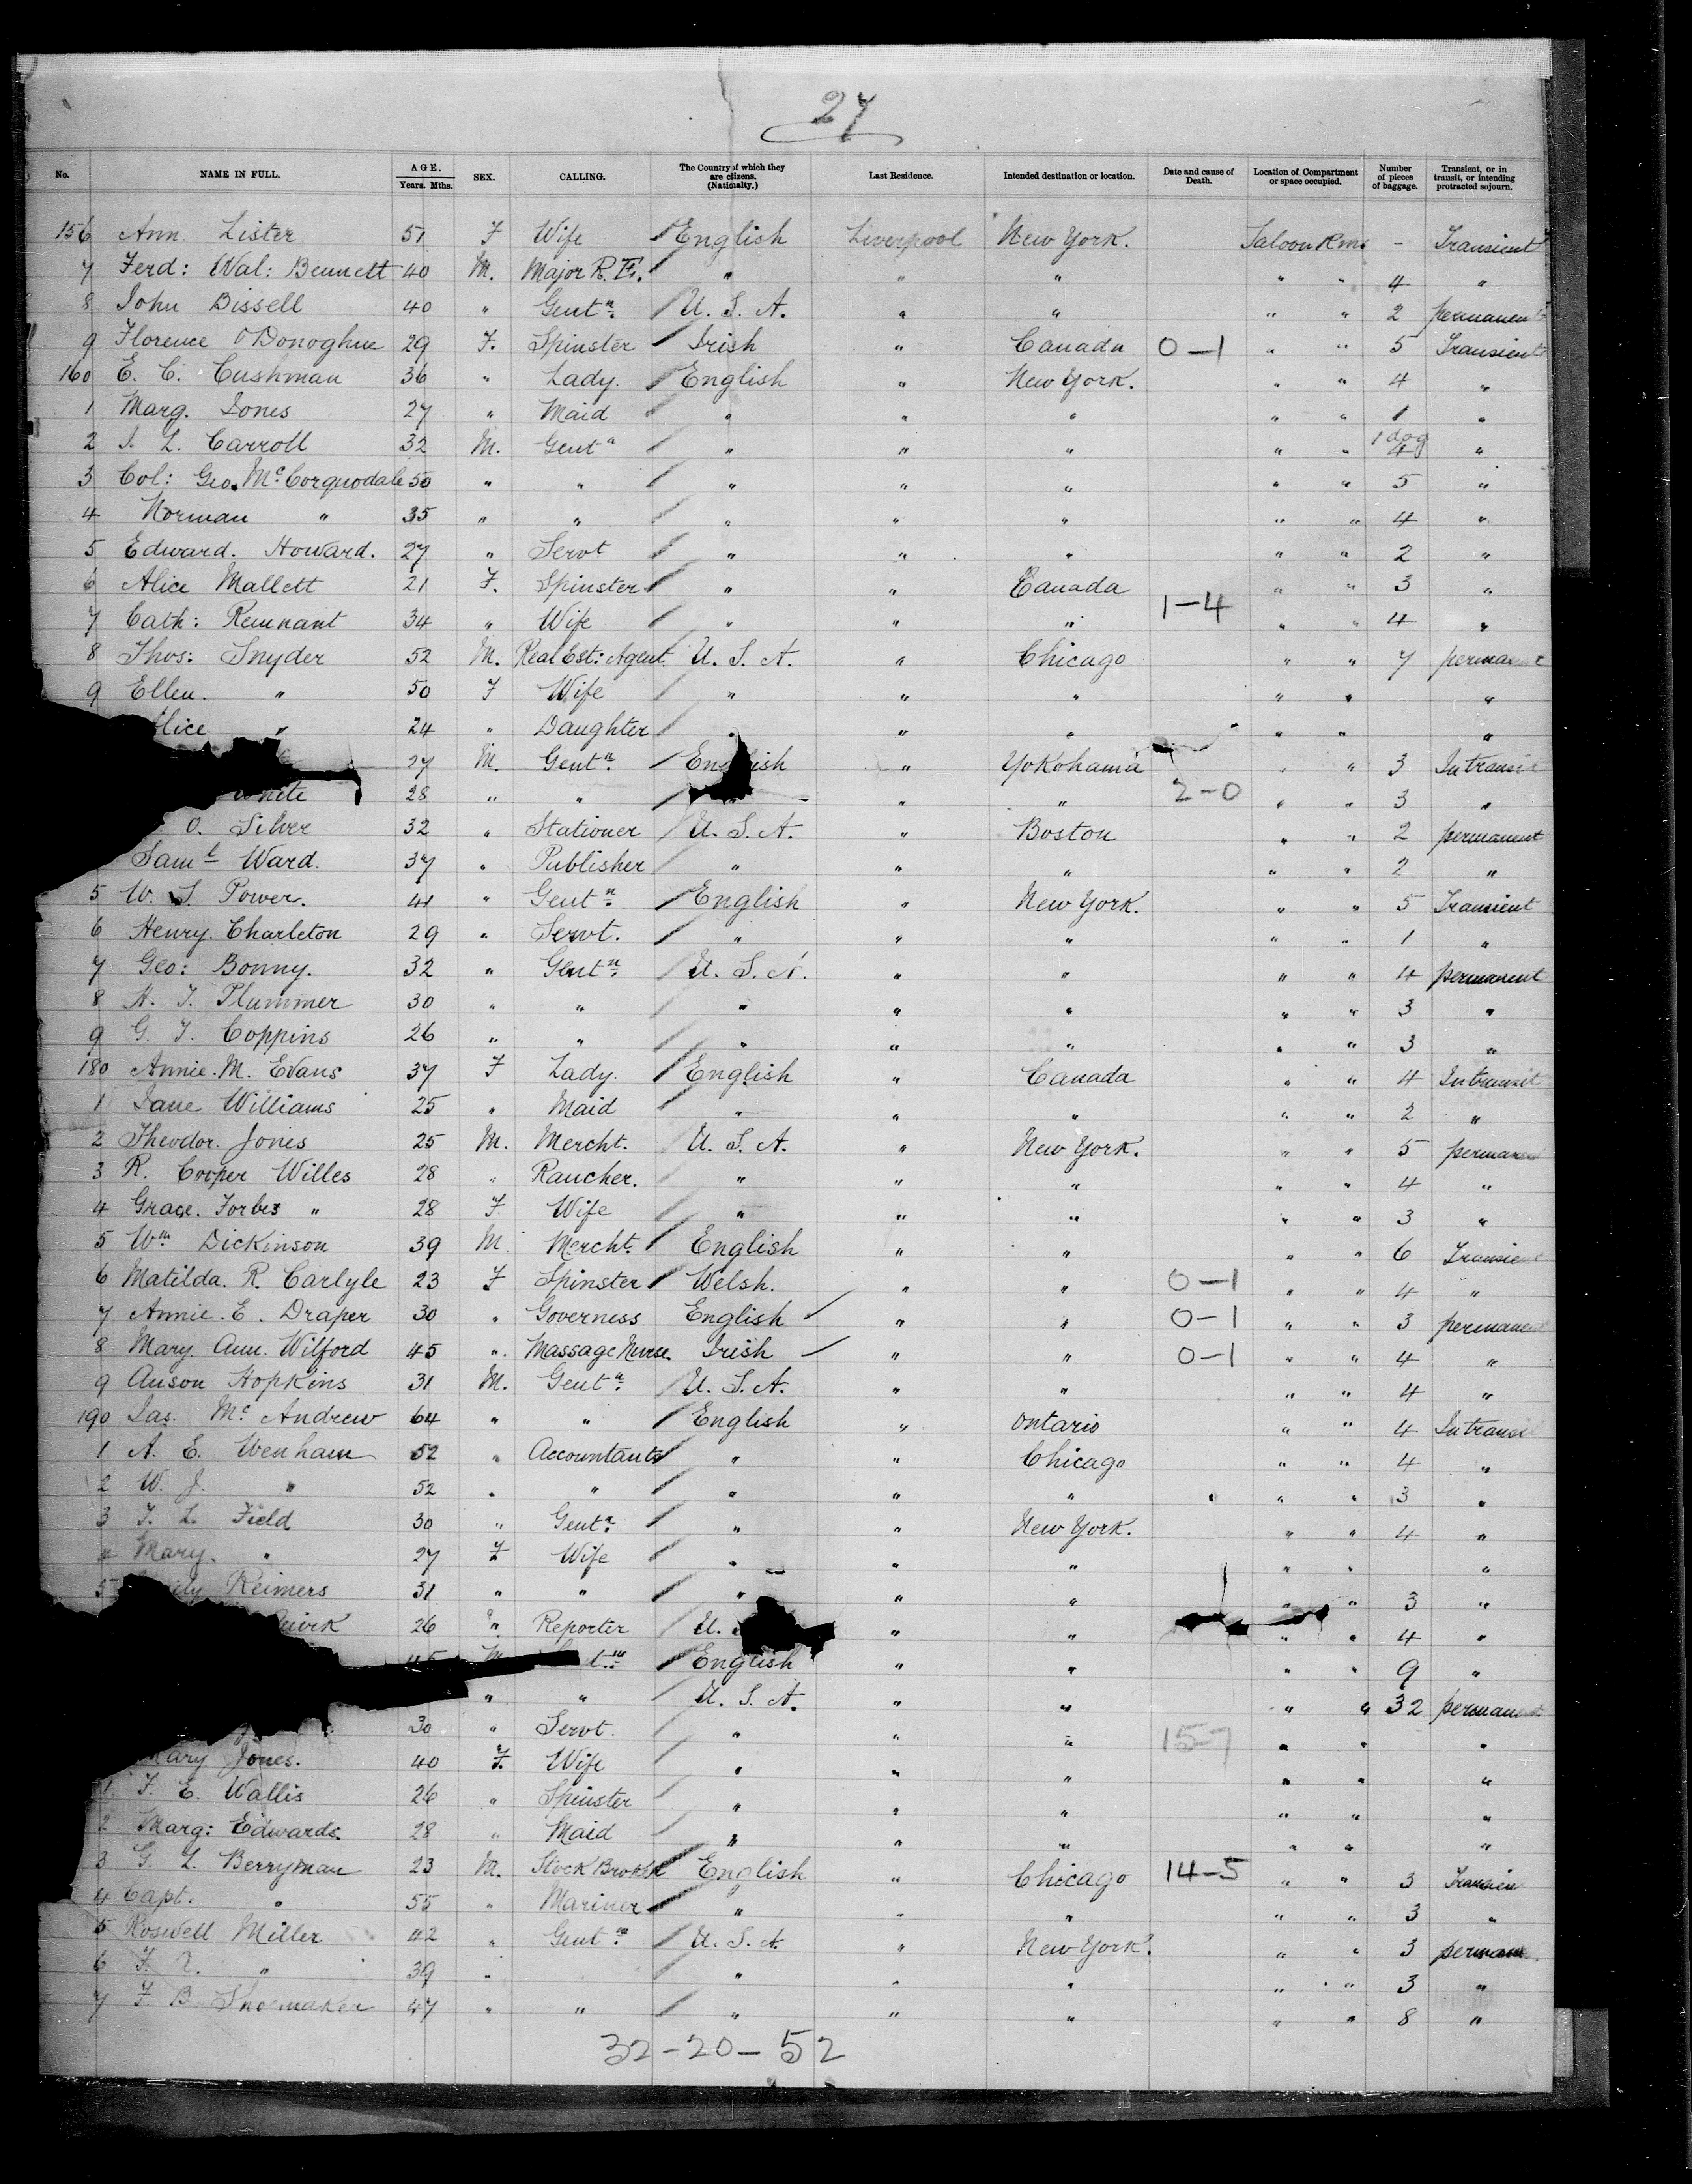 27
No. NAME IN FULL. AGE. Years. Mths. SEX. CALLING. The Country of which they are citizens. (Nationalty.) Last Residence. Intended destination or location. Date and cause of Death. Location of Compartment or space occupied. Number of pieces of baggage. Transient, or in transit, or intending protracted sojourn.
156 Ann. Lister 51 F Wife English Liverpool New York. Saloon Rms - Transient
7 Ferd: Wal: Bennett 40 M. Major R. E. " " " " " 4 "
8 John Bissell 40 " Gentn. U. S. A. " " " " 2 permanent
9 Florence O'Donoghue 29 F. Spinster Irish " Canada 0-1 " " 5 Transient
160 E. C. Cushman 36 " Lady. English " New York. " " 4 "
1 Marg. Jones 27 " Maid " " " " " 1 "
2 J. L. Carroll 32 M. Gentn " " " " " 1 dog 4 "
3 Col: Geo. McCorquodale 50 " " " " " " " 5 "
4 Norman " 35 " " " " " " " 4 "
5 Edward. Howard. 27 " Servt " " " " " 2 "
6 Alice Mallett 21 F. Spinster " " Canada " " 3 "
7 Cath: Remnant 34 " Wife " " " 1-4 " " 4 "
8 Thos: Snyder 52 M. Real Est: Agent. U. S. A. " Chicago " " 7 permanent
9 Ellen. " 50 F Wife " " " " " "
Alice " 24 " Daughter " " " " " "
27 M. Gentn. English " Yokohama " " 3 In transit
White 28 " " " " " 2-0 " " 3 "
O. Silver 32 " Stationer U. S. A. " Boston " " 2 permanent
Saml Ward. 37 " Publisher " " " " " 2 "
5 W. S. Power. 41 " Gentn. English " New York. " " 5 Transient
6 Henry. Charleton 29 " Servt. " " " " " 1 "
7 Geo: Bonny. 32 " Gentn. U. S. A. " " " " 4 permanent
8 H. T. Plummer 30 " " " " " " " 3 "
9 G. T. Coppins 26 " " " " " " " 3 "
180 Annie. M. Evans 37 F Lady. English " Canada " " 4 In transit
1 Jane Williams 25 " Maid " " " " " 2 "
2 Theodor. Jones 25 M. Mercht. U. S. A. " New York. " " 5 permanent
3 R. Cooper Willes 28 " Rancher. " " " " " 4 "
4 Grace. Forbes " 28 F Wife " " " " " 3 "
5 Wm Dickinson 39 M Mercht. English " " " " 6 Transient
6 Matilda. R. Carlyle 23 F Spinster Welsh. " " 0-1 " " 4 "
7 Annie. E. Draper 30 " Governess English " " 0-1 " " 3 permanent
8 Mary. Ann. Wilford 45 " Massage Nurse. Irish " " 0-1 " " 4 "
9 Anson Hopkins 31 M. Gentn. U. S. A. " " " " 4 "
190 Jas. Mc Andrew 64 " " English " Ontario " " 4 In transit
1 A. E. Wenham 52 " Accountants " " Chicago " " 4 "
2 W. J. " 52 " " " " " " " 3 "
3 T. L. Field 30 " Gentn. " " New York. " " 4 "
4 Mary. " 27 F Wife " " " " " "
5 Reimers 31 " " " " " " " 3 "
26 " Reporter U. " " " " 4 "
45 M English " " " " 9 "
" " U. S. A. " " " " 32 permanent
30 " Servt. " " " 15-7 " " "
Mary Jones. 40 F. Wife " " " " " "
1 F. E. Wallis 26 " Spinster " " " " " "
2 Marg: Edwards. 28 " Maid " " " " " "
3 G. L. Berryman 23 M. Stock Broker English " Chicago 14-5 " " 3 Transien
4 Capt. " 55 " Mariner " " " " " 3 "
5 Roswell Miller 42 " Gentn. U. S. A. " New York. " " 3 perman
6 F. A. " 39 " " " " " " 3 "
7 F. B. Shoemaker 47 " " " " " " " 8 "
32-20-52